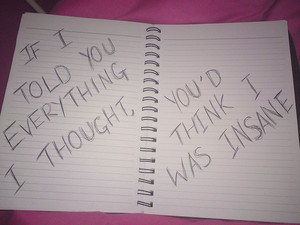 IF I
TOLD YOU
EVERYTHING
I THOUGHT,
YOU'D
THINK I
WAS INSANE